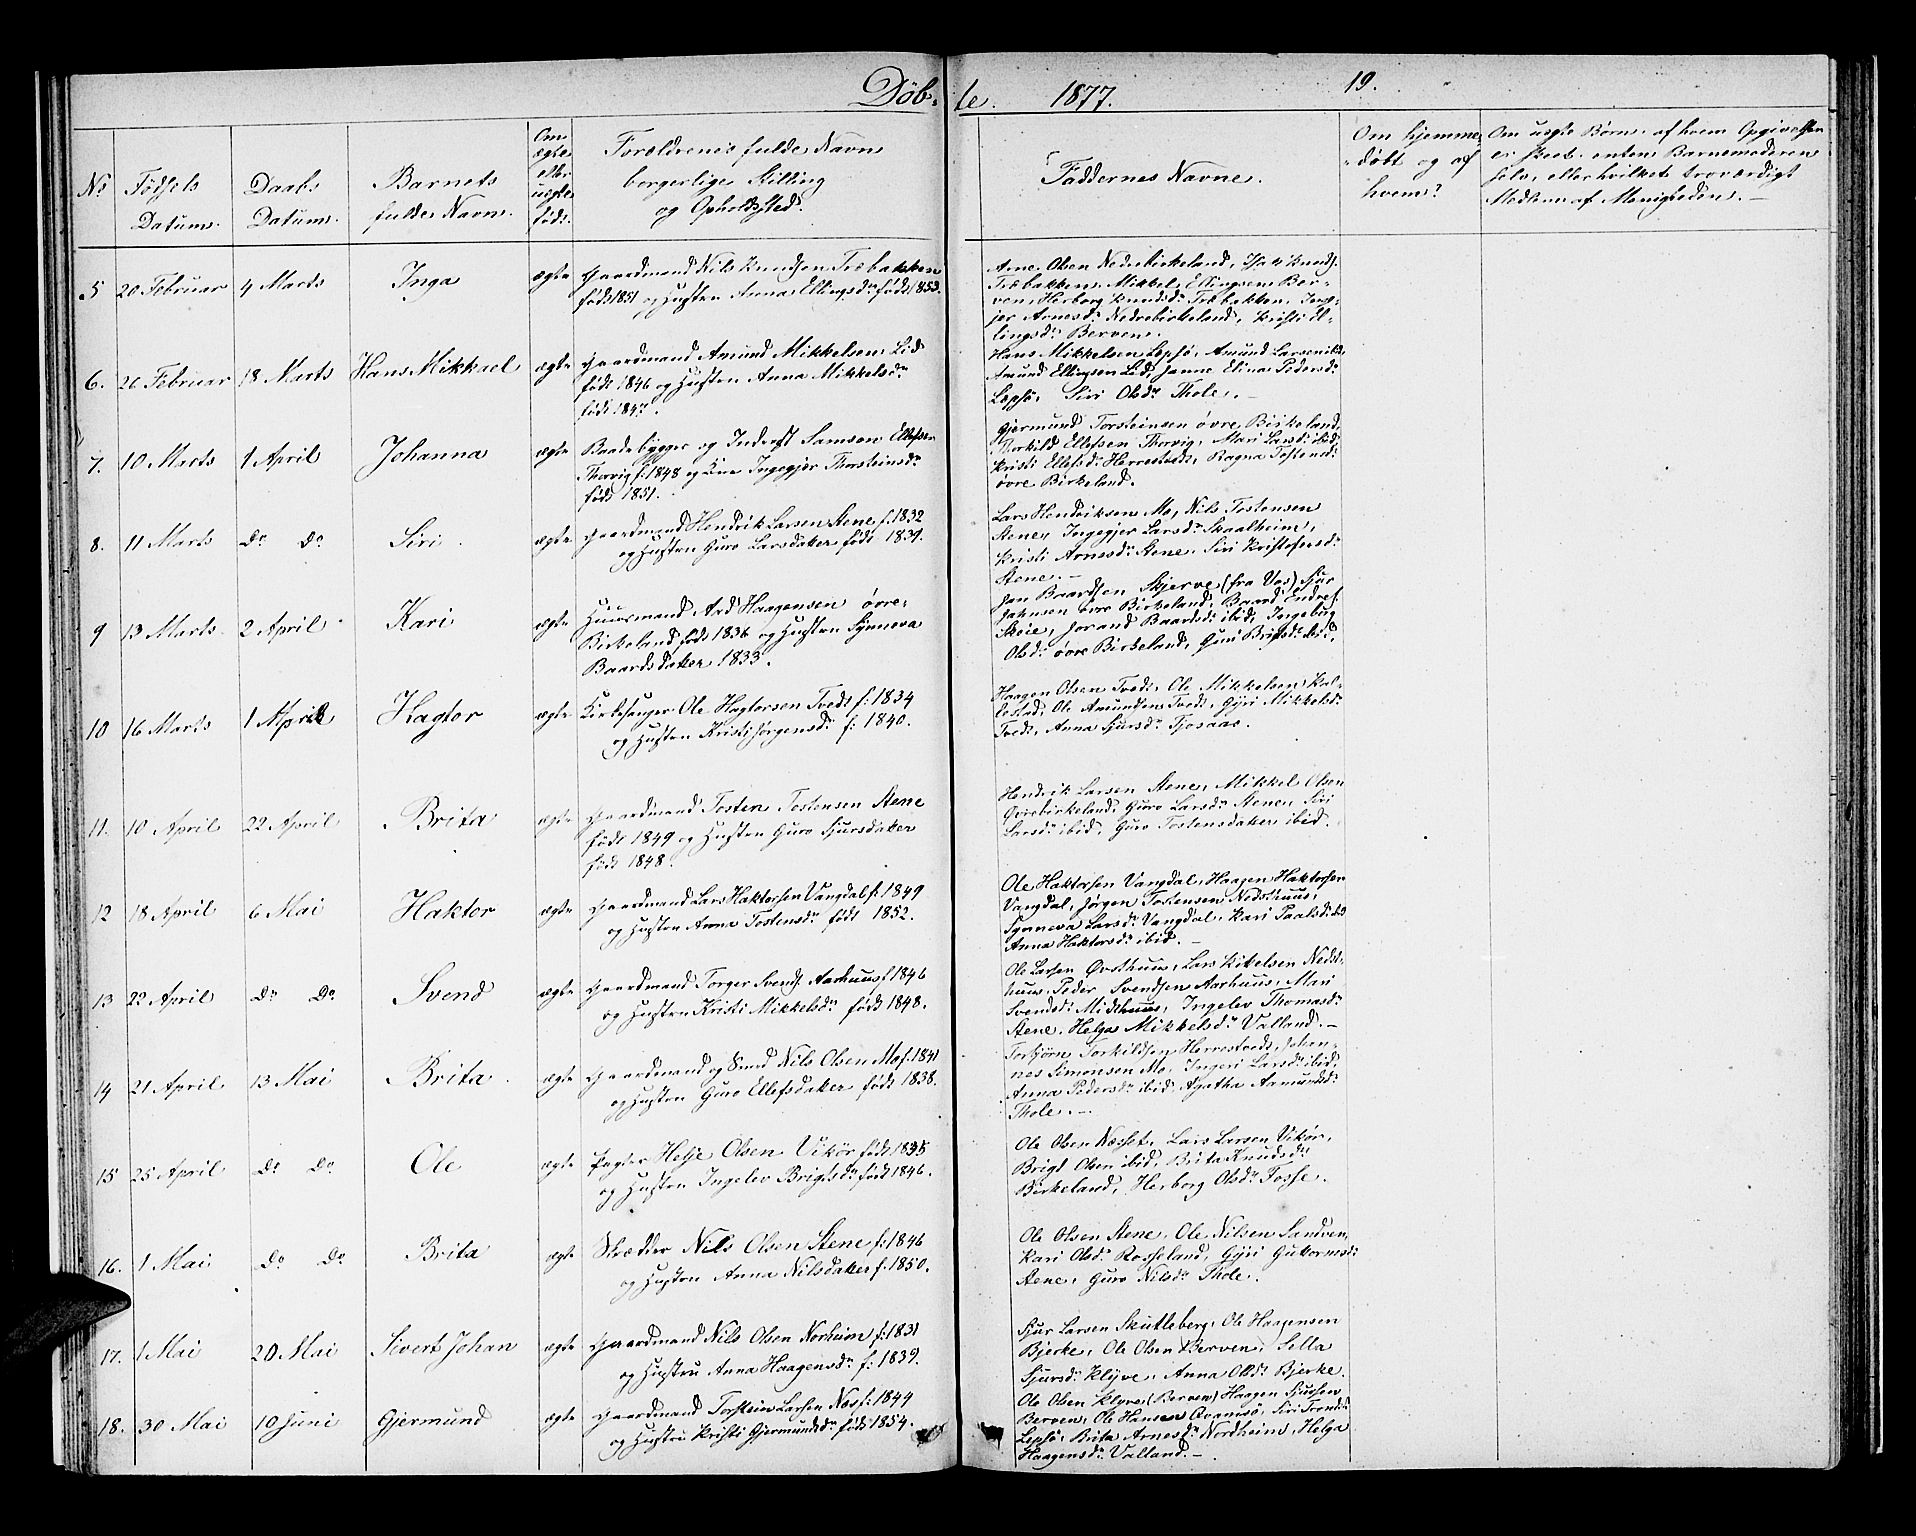 Døb-
te. 1877. 19.
No
Fødsels
Datum.
Daabs
Datum.
Barnets
fulde Navn.
Om
ægte
eller
uægte
født.
Forældrenes fulde Navn
borgerlige Stilling
og Opholdssted.
Faddernes Navne.
Om hjemme-
døbt og af
hvem?
Om uægte Børn. af hvem Opgivelsen
er skeet. enten Barnemoderen
selv, eller hvilket troværdigt
Medlem af Menigheden. —
5 20 Februar 4 Marts Inga ægte Gaardmand Nils Knudsen Træbakken
født 1851 og Hustru Anna Ellingsdr født 1853.
Arne Olsen Nedrebirkeland, Isak Knuds.
Træbakken, Mikkel Ellingsen Ber-
ven, Herborg Knudsdr Træbakken, Inge-
jer Arnesdr Nedrebirkeland, Kristi El-
lingsdr Berven.
6. 26 Februar 18 Marts Hans Mikkael ægte Gaardmand Amund Mikkelsen Lid
født 1846 og Hustru Anna Mikkelsdr
født 1847.
Hans Mikkelsen Lepsø, Amund Larsen ibd,
Amund Ellingsen Lid, Janne Elina Pedersdr
Lepsø, Siri Olsdr Thole. —
7. 10 Marts 1 April Johanna ægte Baadebygger og Inderst Samson Ellefsen
Thorvig f. 1848 og Kone Ingegjer Thorsteinsdr
født 1851.
Gjermund Torsteinsen øvre Birkeland,
Torkild Ellefsen Thorvig, Mari Larsdr ibid,
Kristi Ellefsdr Herrestveit, Ragna Tostensdr
øvre Birkeland.
8. 11 Marts Do Do Siri ægte Gaardmand Hendrik Larsen Stene f. 1832
og Hustru Guro Larsdatter født 1839.
Lars Hendriksen Mo, Nils Tostensen
Stene, Ingegjer Larsdr Skaalheim,
Kristi Arnesdr Stene, Siri Kristofersdr
Stene. —
9 13 Marts 2 April Kari ægte Huusmand Aad Haagensen øvre-
Birkeland født 1836 og Hustru Synneva
Baardsdatter 1833.
Jan Baardsen Skjerve (fra Vos) Sjur
Johnsen øvre Birkeland, Baard Endres.
Skeie, Jorand Baardsdr ibid, Ingeborg
Olsdr øvre Birkeland, Guri Brigtsdr ibid.
10 16 Marts 1 April Hagtor ægte Kirkesanger Ole Hagtorsen Tveit f. 1834
og Hustru Kristi Jørgensdr f. 1840.
Haagen Olsen Tveit, Ole Mikkelsen Kal-
lestad, Ole Amundsen Tveit, Gyri Mikkelsdr
Tveit, Anna Sjursdr Tjosaas.
11. 10 April 22 April Brita ægte Gaardmand Tosten Tostensen Stene
født 1849 og Hustru Guro Sjursdatter
født 1848.
Hendrik Larsen Stene, Mikkel Olsen
Øvrebirkeland, Guro Larsdr Stene, Siri
Larsdr ibid, Guro Tostensdatter ibid.
12 18 April 6 Mai Haktor ægte Gaardmand Lars Haktorsen Vangdal f. 1849
og Hustru Anna Tostensdr født 1852.
Ole Haktorsen Vangdal, Haagen Haktorsen
Vangdal, Jørgen Tostensen Nedsthuus,
Synneva Larsdr Vangdal, Kari Paalsdr ibid
Anna Haktorsdr ibid. —
13 20 April Do Do Svend ægte Gaardmand Torger Svends. Aarhuus f. 1846
og Hustru Kristi Mikkelsdr født 1848.
Ole Larsen Øvsthuus, Lars Kitelsen Nedst-
huus, Peder Svendsen Aarhuus, Mari
Svendsdr Midthuus, Ingelev Thomasdr
Stene, Helga Mikkelsdr Valland. —
14 21 April 13 Mai Brita. ægte Gaardmand og Smed Nils Olsen Mo f. 1841
og Hustru Guro Ellefsdatter født 1838.
Torbjørn Torkildsen Herrestveit, Johan-
nes Simonsen Mo, Ingeri Larsdr ibid,
Anna Pedersdr ibid, Agatha Aamundsdr
Thole. —
15 25 April Do Do Ole ægte Pagter Helje Olsen Vikør født 1835
og Hustru Ingelev Brigtsdr født 1846.
Ole Olsen Næsset, Lars Larsen Vikør,
Brigt Olsen ibid, Brita Knudsdr
Birkeland, Herborg Olsdr Fosse.
16. 1 Mai Do Do Brita ægte Skrædder Nils Olsen Stene f. 1846
og Hustru Anna Nilsdatter f. 1850.
Ole Olsen Stene, Ole Nilsen Sandven,
Kari Olsdr Rosseland, Gyri Guttormsdr
Stene, Guro Nilsdr Thole.
17. 1 Mai 20 Mai Sivert Johan ægte Gaardmand Nils Olsen Norheim f. 1831
og Hustru Anna Haagensdr f. 1839.
Sjur Larsen Skutleberg, Ole Haagensen
Bjerke, Ole Olsen Berven, Sella
Sjursdr Klyve, Anna Olsdr Bjerke.
18. 30 Mai 10 Juni Gjermund ægte Gaardmand Torstein Larsen Næs f. 1844
og Hustru Kristi Gjermundsdr født 1854.
Ole Olsen Klyve (Berven) Haagen Sjursen
Berven, Ole Hansen Qvamsø, Siri Trondsdr
Lepsø, Brita Arnesdr Nordheim, Helga
Haagensdr Valland. —